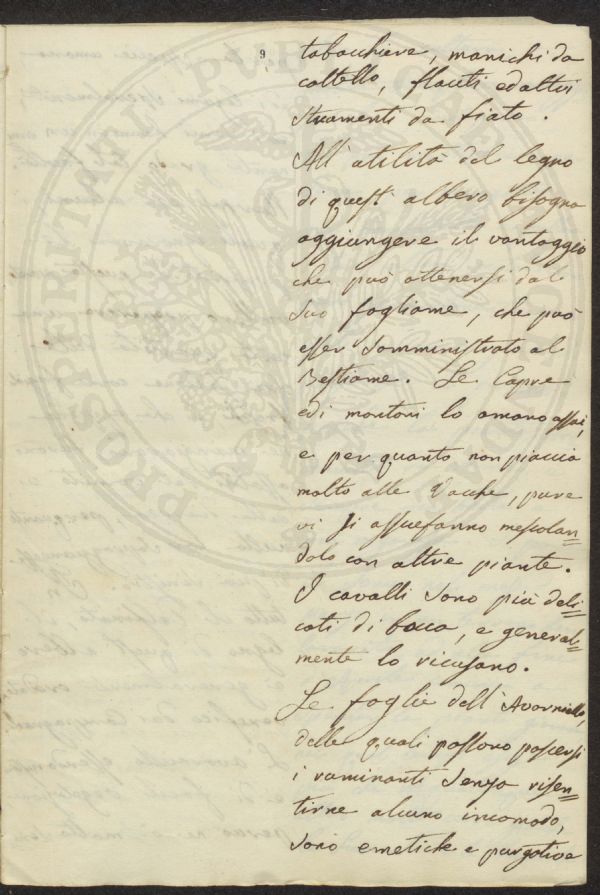 9
tabacchiere, manichi da
coltello, flauti ed altri
Strumenti da fiato.
All' utilità del legno
di quest' albero bisogna
aggiungere il vantaggio
che può ottenersi dal
suo fogliame, che può
esser somministrato al
Bestiame. Le Capre
ed i montoni lo amano assai,
e per quanto non piaccia
molto alle Vacche, pure
vi si assuefanno mescolan=
dolo con altre piante.
I cavalli sono più deli=
cati di bocca, e general=
mente lo ricusano.
Le foglie dell' Avorniello,
delle quali possono pascersi
i ruminanti senza risen=
tirne alcuno incomodo,
sono emetiche e purgative
PROSPERITATI PUBLICAE AUGENDAE